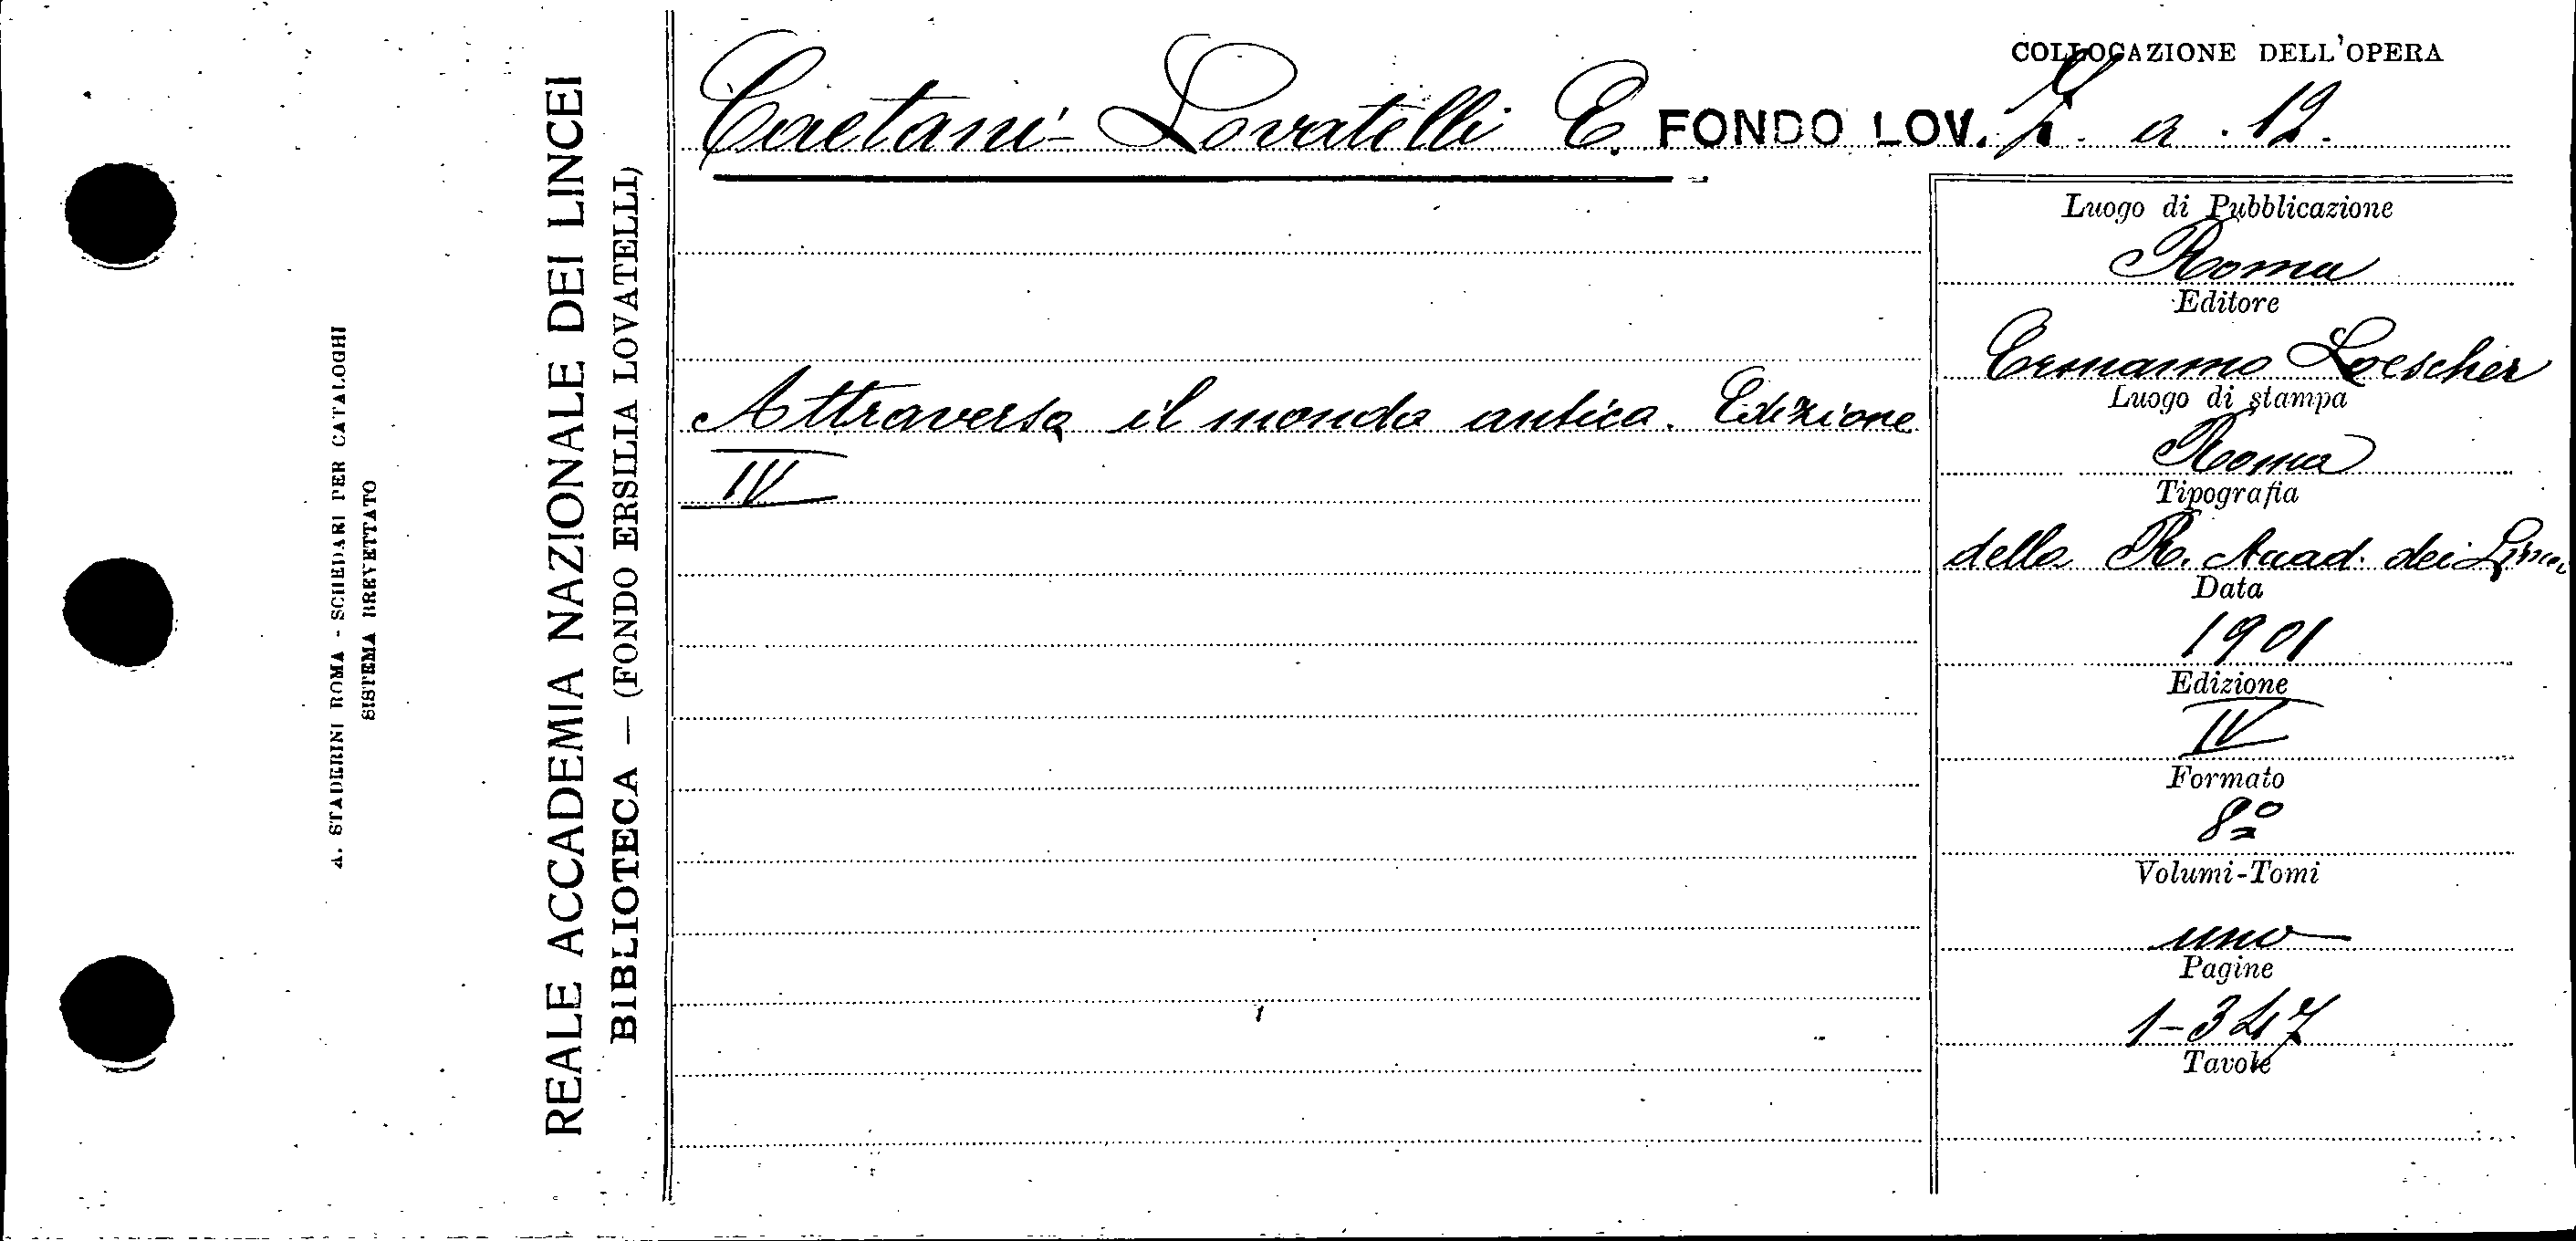 A. STADERINI ROMA - SCHEDARI PER CATALOGHI
SISTEMA BREVETTATO
REALE ACCADEMIA NAZIONALE DEI LINCEI
BIBLIOTECA — (FONDO ERSILIA LOVATELLI)
COLLOCAZIONE DELL'OPERA
Caetani-Lovatelli E. FONDO LOV. a. 12.
Attraverso il mondo antico. Edizione
IV
Luogo di Pubblicazione
Roma
Editore
Ermanno Loescher
Luogo di stampa
Roma
Tipografia
della R. Accad. dei Lincei
Data
1901
Edizione
IV
Formato
8º
Volumi-Tomi
uno
Pagine
1-347
Tavole